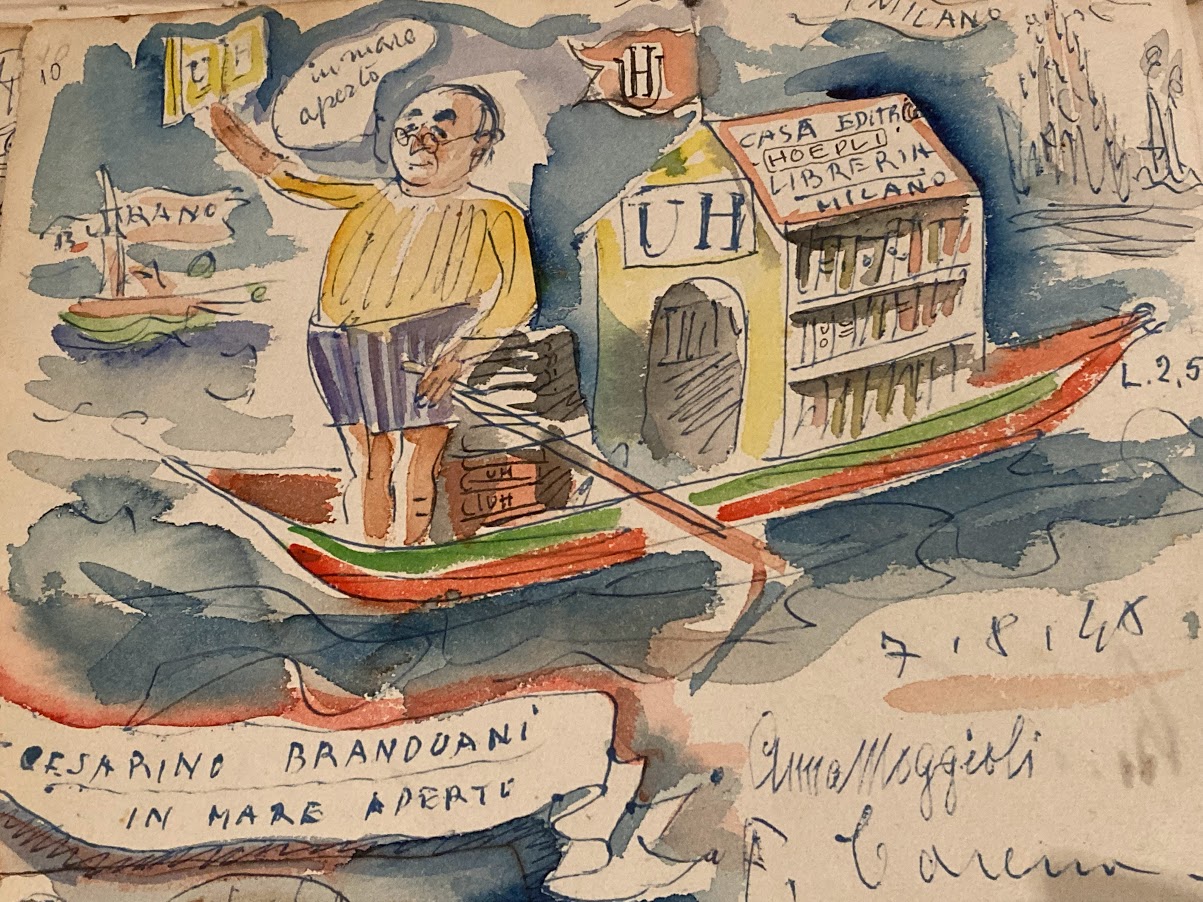 10
10
UH
in mare
aperto
UH
MILANO
BURANO
CASA EDITRICE
HOEPLI
LIBRERIA
MILANO
UH
UH
UH
L. 2,5
7.8.48
CESARINO BRANDUANI
IN MARE APERTO
Anna Moggioli
F. Carena